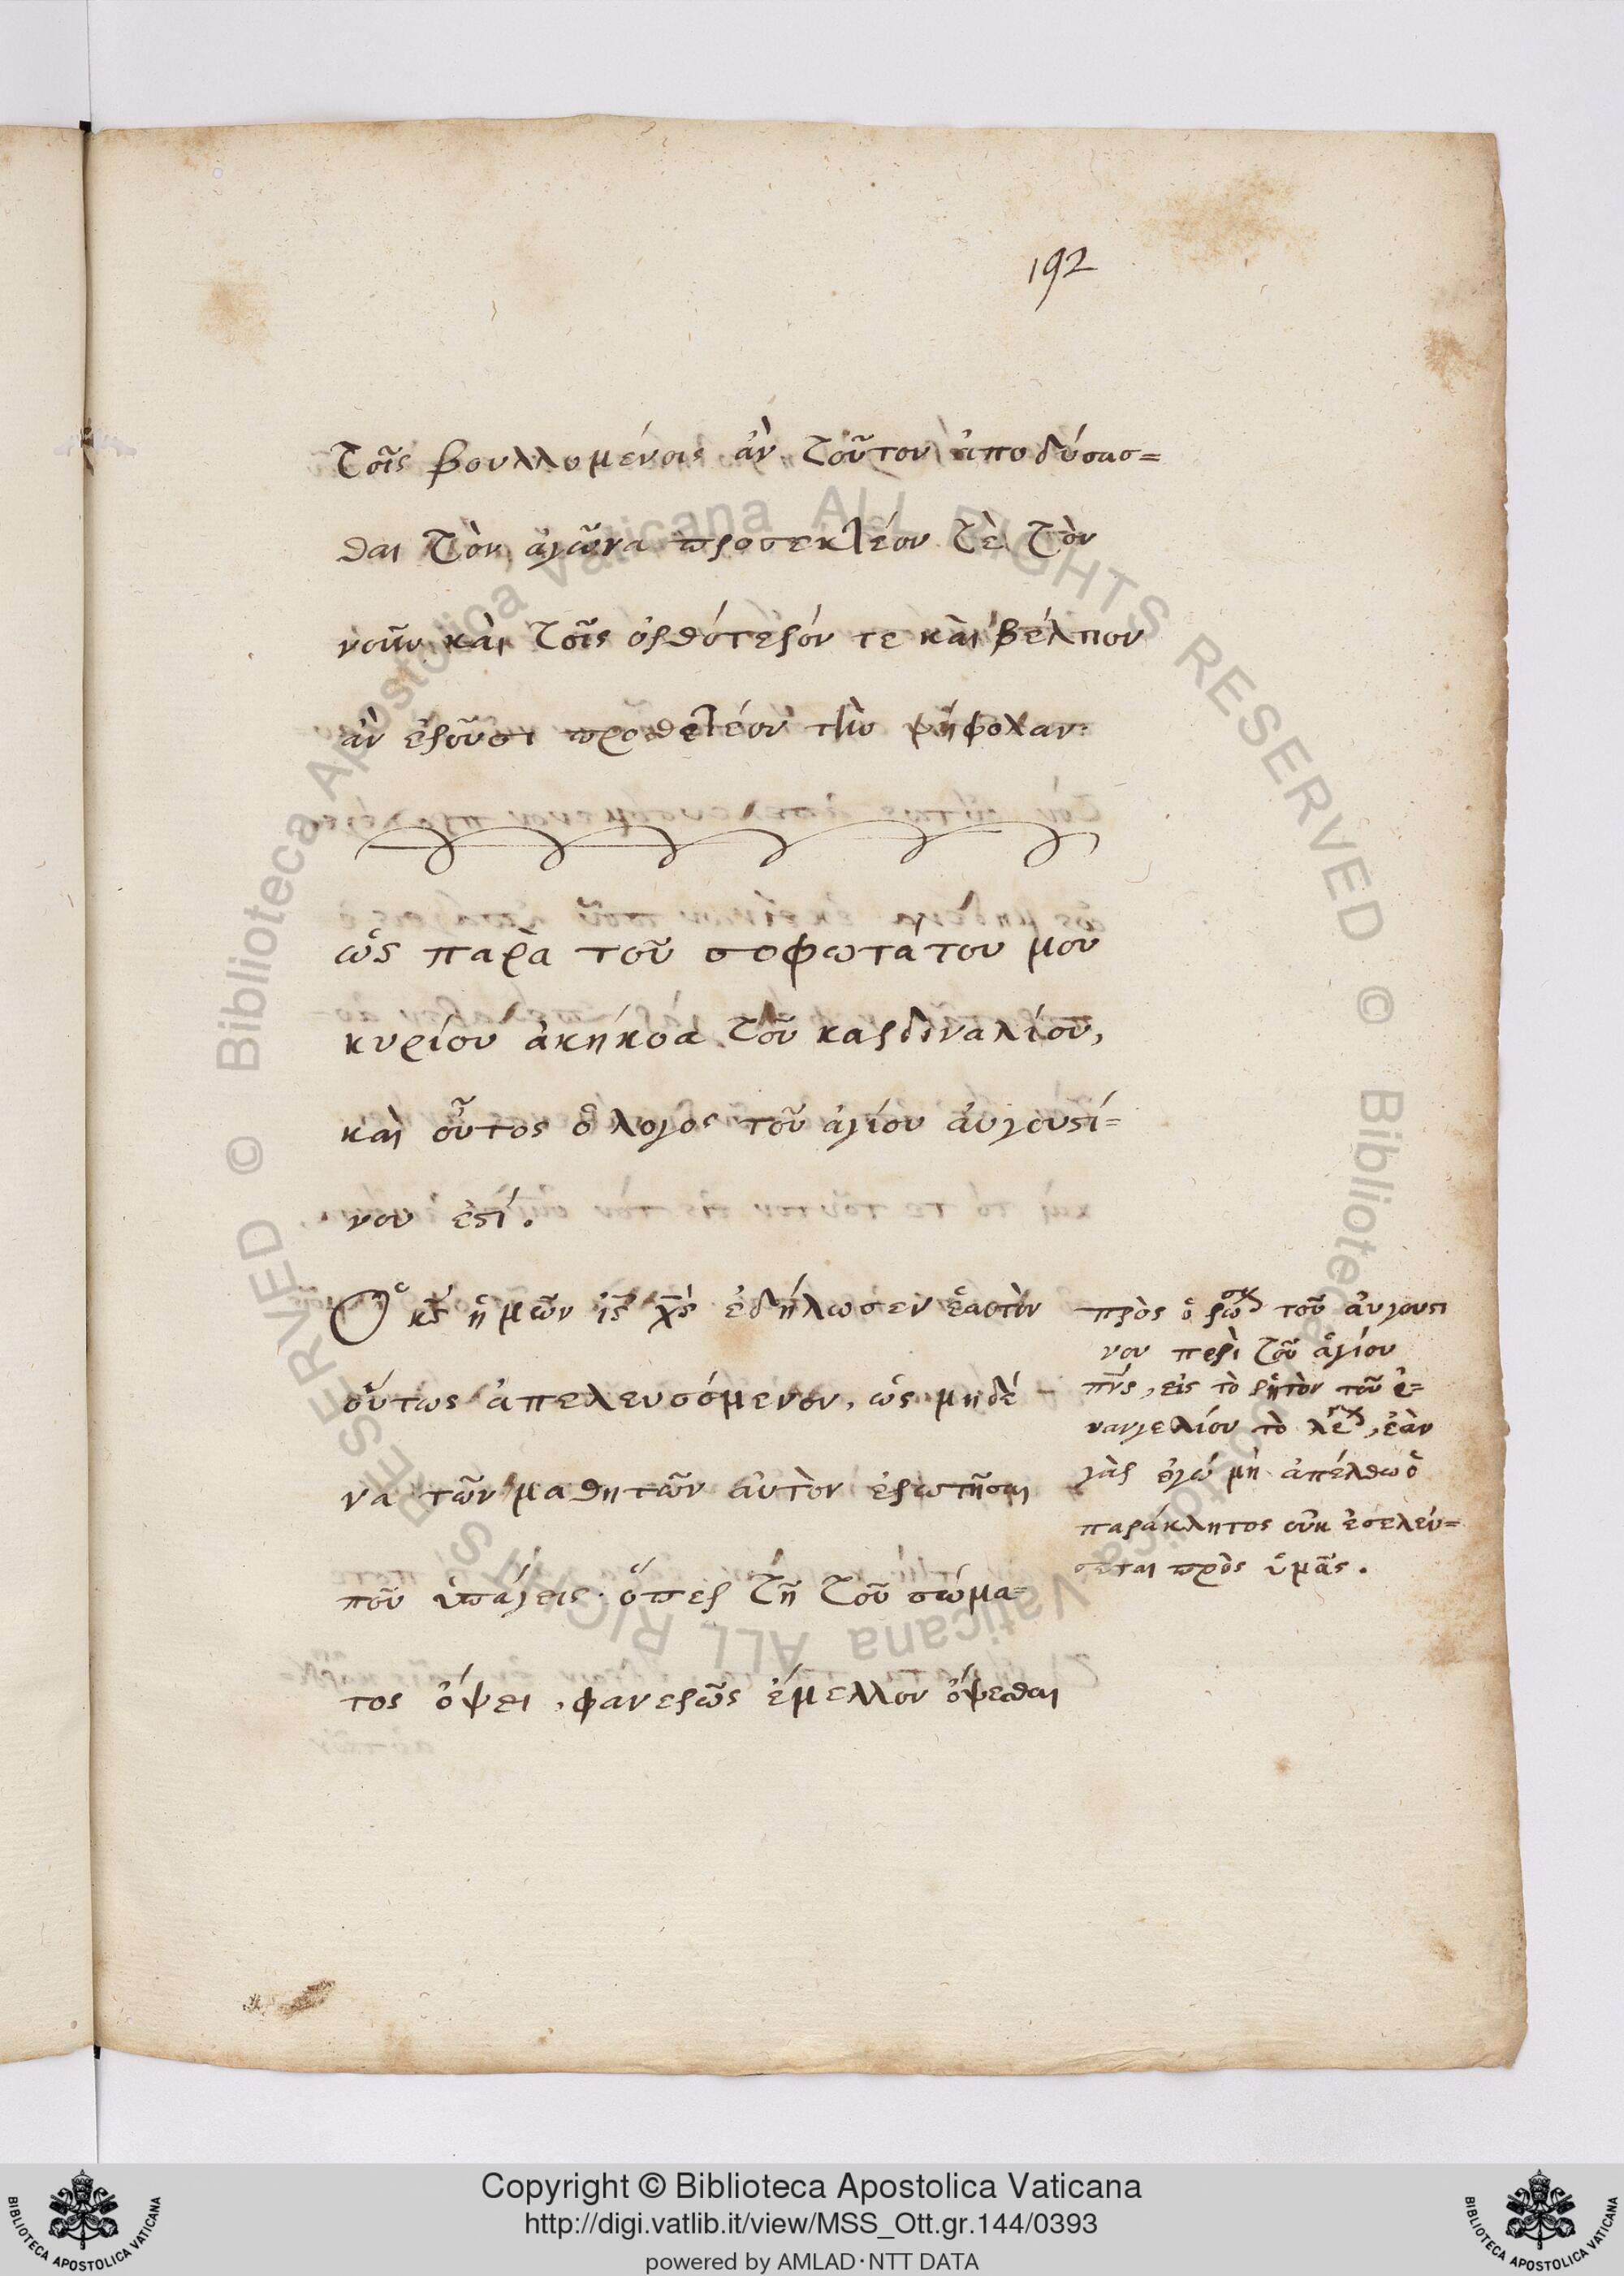 192
τοῖς βουλλομένοις ἂν τοῦτον ἀποδύσασ=
θαι τὸν ἀγῶνα προσεκτέον τὲ τὸν
νοῦν καὶ τοῖς ὀρθότερόν τε καὶ βέλτιον
ἂν ἐροῦσι προσθετέον τὴν ψῆφον
ὡς παρὰ τοῦ σοφωτάτου μου
κυρίου ἀκήκοα τοῦ καρδιναλίου,
καὶ οὗτος ὁ λόγος τοῦ ἁγίου αὐγουστί=
νου ἐστί.
Ὁ κς ἡμῶν ις χς ἐδήλωσεν ἑαυτὸν
οὕτως ἀπελευσόμενον, ὡς μηδέ
να τῶν μαθητῶν αὐτὸν ἐρωτῆσαι
ποῦ ὑπάγεις· ὅπερ τῇ τοῦ σώμα=
τος ὄψει, φανερῶς ἔμελλον ὄψεσθαι
πρὸς τοῦ αὐγουστι
νου περὶ τοῦ ἁγίου
πνς, εἰς τὸ ῥητὸν τοῦ ἐ=
υαγγελίου τὸ, ἐὰν
γὰρ ἐγώ μὴ ἀπέλθω ὁ
παράκλητος οὐκ ἐσελεύ=
σεται πρὸς ὑμᾶς.
Copyright © Biblioteca Apostolica Vaticana
http://digi.vatlib.it/view/MSS_Ott.gr.144/0393
powered by AMLAD·NTT DATA
BIBLIOTECA APOSTOLICA VATICANA
BIBLIOTECA APOSTOLICA VATICANA
© Biblioteca Apostolica Vaticana ALL RIGHTS RESERVED
© Biblioteca Apostolica Vaticana ALL RIGHTS RESERVED